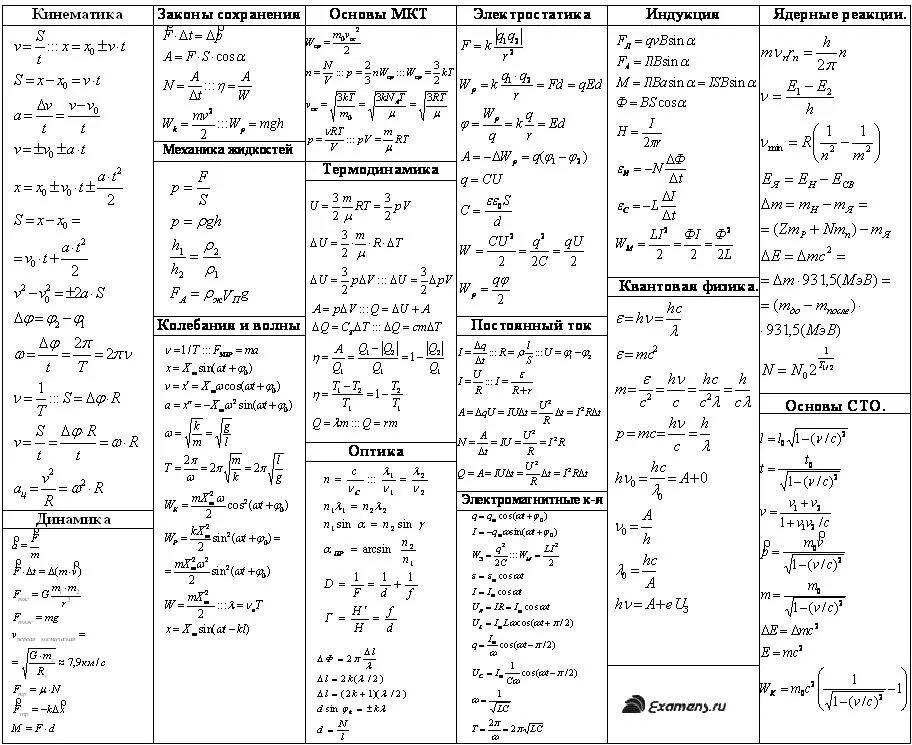 Кинематика
v = S/t ::: x = x₀ ± v·t
S = x − x₀ = v·t
a = Δv/t = (v − v₀)/t
v = ±v₀ ± a·t
x = x₀ ± v₀·t ± a·t²/2
S = x − x₀ =
= v₀·t + a·t²/2
v² − v₀² = ±2a·S
Δφ = φ₂ − φ₁
ω = Δφ/t = 2π/T = 2πν
ν = 1/T ::: S = Δφ·R
v = S/t = Δφ·R/t = ω·R
aц = v²/R = ω²·R
Динамика
a = F/m
F·Δt = Δ(m·v)
F = G m₁·m₂/r²
F = mg
v первая космическая =
= √(G·m/R) ≈ 7,9км/с
F = μ·N
F = −kΔx
M = F·d
Законы сохранения
F·Δt = Δp
A = F·S·cosα
N = A/Δt ::: η = A/W
Wk = mv²/2 ::: Wp = mgh
Механика жидкостей
p = F/S
p = ρgh
h₁/h₂ = ρ₂/ρ₁
F_A = ρжVпg
Колебания и волны
ν = 1/T ::: Fупр = ma
x = Xₘsin(ωt+φ₀)
v = x' = Xₘωcos(ωt+φ₀)
a = x" = −Xₘω²sin(ωt+φ₀)
ω = √(k/m) = √(g/l)
T = 2π/ω = 2π√(m/k) = 2π√(l/g)
Wк = mXₘ²ω/2 cos²(ωt+φ₀)
Wp = kXₘ²/2 sin²(ωt+φ₀) =
= mXₘ²ω²/2 sin²(ωt+φ₀)
W = mXₘ²/2 ::: λ = vₙT
x = Xₘsin(ωt−kl)
Основы МКТ
Wср = m₀vск²/2
n = N/V ::: p = 2/3 nWср ::: Wср = 3/2 kT
vск = √(3kT/m₀) = √(3kN_AT/μ) = √(3RT/μ)
p = νRT/V ::: pV = m/μ RT
Термодинамика
U = 3/2 m/μ RT = 3/2 pV
ΔU = 3/2·m/μ·R·ΔT
ΔU = 3/2 pΔV ::: ΔU = 3/2 ΔpV
A = pΔV ::: Q = ΔU + A
ΔQ = CₓΔT ::: ΔQ = cmΔT
η = A/Q₁ = (Q₁−|Q₂|)/Q₁ = 1−|Q₂|/Q₁
η = (T₁−T₂)/T₁ = 1−T₂/T₁
Q = λm ::: Q = rm
Оптика
n = c/vC ::: λ₁/v₁ = λ₂/v₂
n₁λ₁ = n₂λ₂
n₁sin α = n₂sin γ
αпр = arcsin n₂/n₁
D = 1/F = 1/d + 1/f
Γ = H'/H = f/d
ΔΦ = 2π Δl/λ
Δl = 2k(λ/2)
Δl = (2k+1)(λ/2)
d sin φk = ±kλ
d = N/l
Электростатика
F = k |q₁q₂|/r²
Wp = k q₁·q₂/r = Fd = qEd
φ = Wp/q = k q/r = Ed
A = −ΔWp = q(φ₁−φ₂)
q = CU
C = εε₀S/d
W = CU²/2 = q²/2C = qU/2
Wp = qφ/2
Постоянный ток
I = Δq/Δt ::: R = ρ l/S ::: U = φ₁−φ₂
I = U/R ::: I = ε/(R+r)
A = ΔqU = IUΔt = U²/R Δt = I²RΔt
N = A/Δt = IU = U²/R = I²R
Q = A = IUΔt = U²/R Δt = I²RΔt
Электромагнитные к-я
q = qₘcos(ωt+φ₀)
I = −qₘωsin(ωt+φ₀)
Wэ = q²/2C ::: Wм = LI²/2
s = sₘcosωt
I = Iₘcosωt
U_R = IR = Iₘcosωt
U_L = IₘLωcos(ωt+π/2)
q = Iₘ/ω cos(ωt−π/2)
U_C = Iₘ 1/Cω cos(ωt−π/2)
ω = 1/√LC
T = 2π/ω = 2π√LC
Индукция
Fл = qvBsinα
F_A = IlBsinα
M = IlBasinα = ISBsinα
Φ = BScosα
H = I/2πr
εи = −N ΔΦ/Δt
εс = −L ΔI/Δt
Wм = LI²/2 = ΦI/2 = Φ²/2L
Квантовая физика.
ε = hν = hc/λ
ε = mc²
m = ε/c² = hν/c² = hc/c²λ = h/cλ
p = mc = hν/c = h/λ
hν₀ = hc/λ₀ = A+0
ν₀ = A/h
λ₀ = hc/A
hν = A+eU₃
Examens.ru
Ядерные реакции.
mvₙrₙ = h/2π n
ν = (E₁−E₂)/h
νmin = R(1/n² − 1/m²)
Eя = Eн − Eсв
Δm = mн − mя =
= (Zmp + Nmn) − mя
ΔE = Δmc² =
= Δm·931,5(МэВ) =
= (mдо − mпосле)·
·931,5(МэВ)
N = N₀2^(1/T1/2)
Основы СТО.
l = l₀√(1−(v/c)²)
t = t₀/√(1−(v/c)²)
v = (v₁+v₂)/(1+v₁v₂/c)
p = m₀v/√(1−(v/c)²)
m = m₀/√(1−(v/c)²)
ΔE = Δmc²
E = mc²
Wк = m₀c²(1/√(1−(v/c)²) −1)